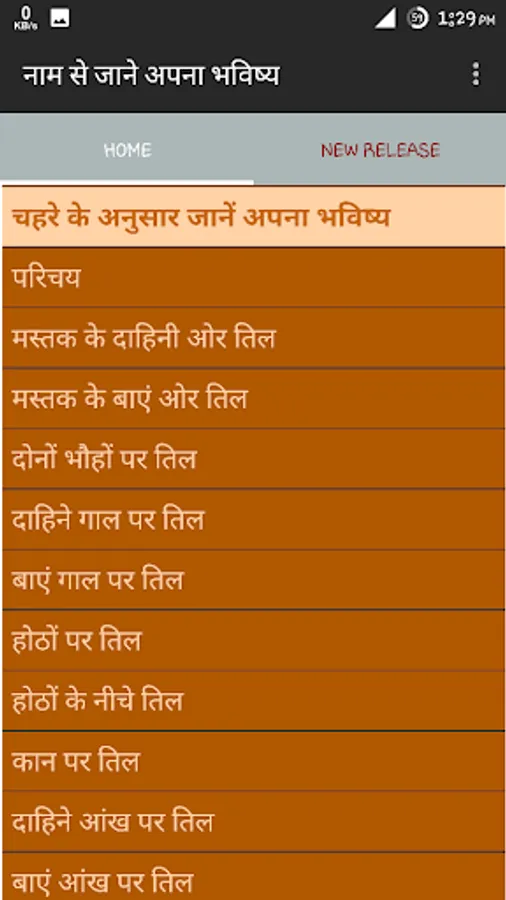 0
KB/s
59
1:29 PM
नाम से जाने अपना भविष्य
HOME
NEW RELEASE
चहरे के अनुसार जानें अपना भविष्य
परिचय
मस्तक के दाहिनी ओर तिल
मस्तक के बाएं ओर तिल
दोनों भौहों पर तिल
दाहिने गाल पर तिल
बाएं गाल पर तिल
होठों पर तिल
होठों के नीचे तिल
कान पर तिल
दाहिने आंख पर तिल
बाएं आंख पर तिल